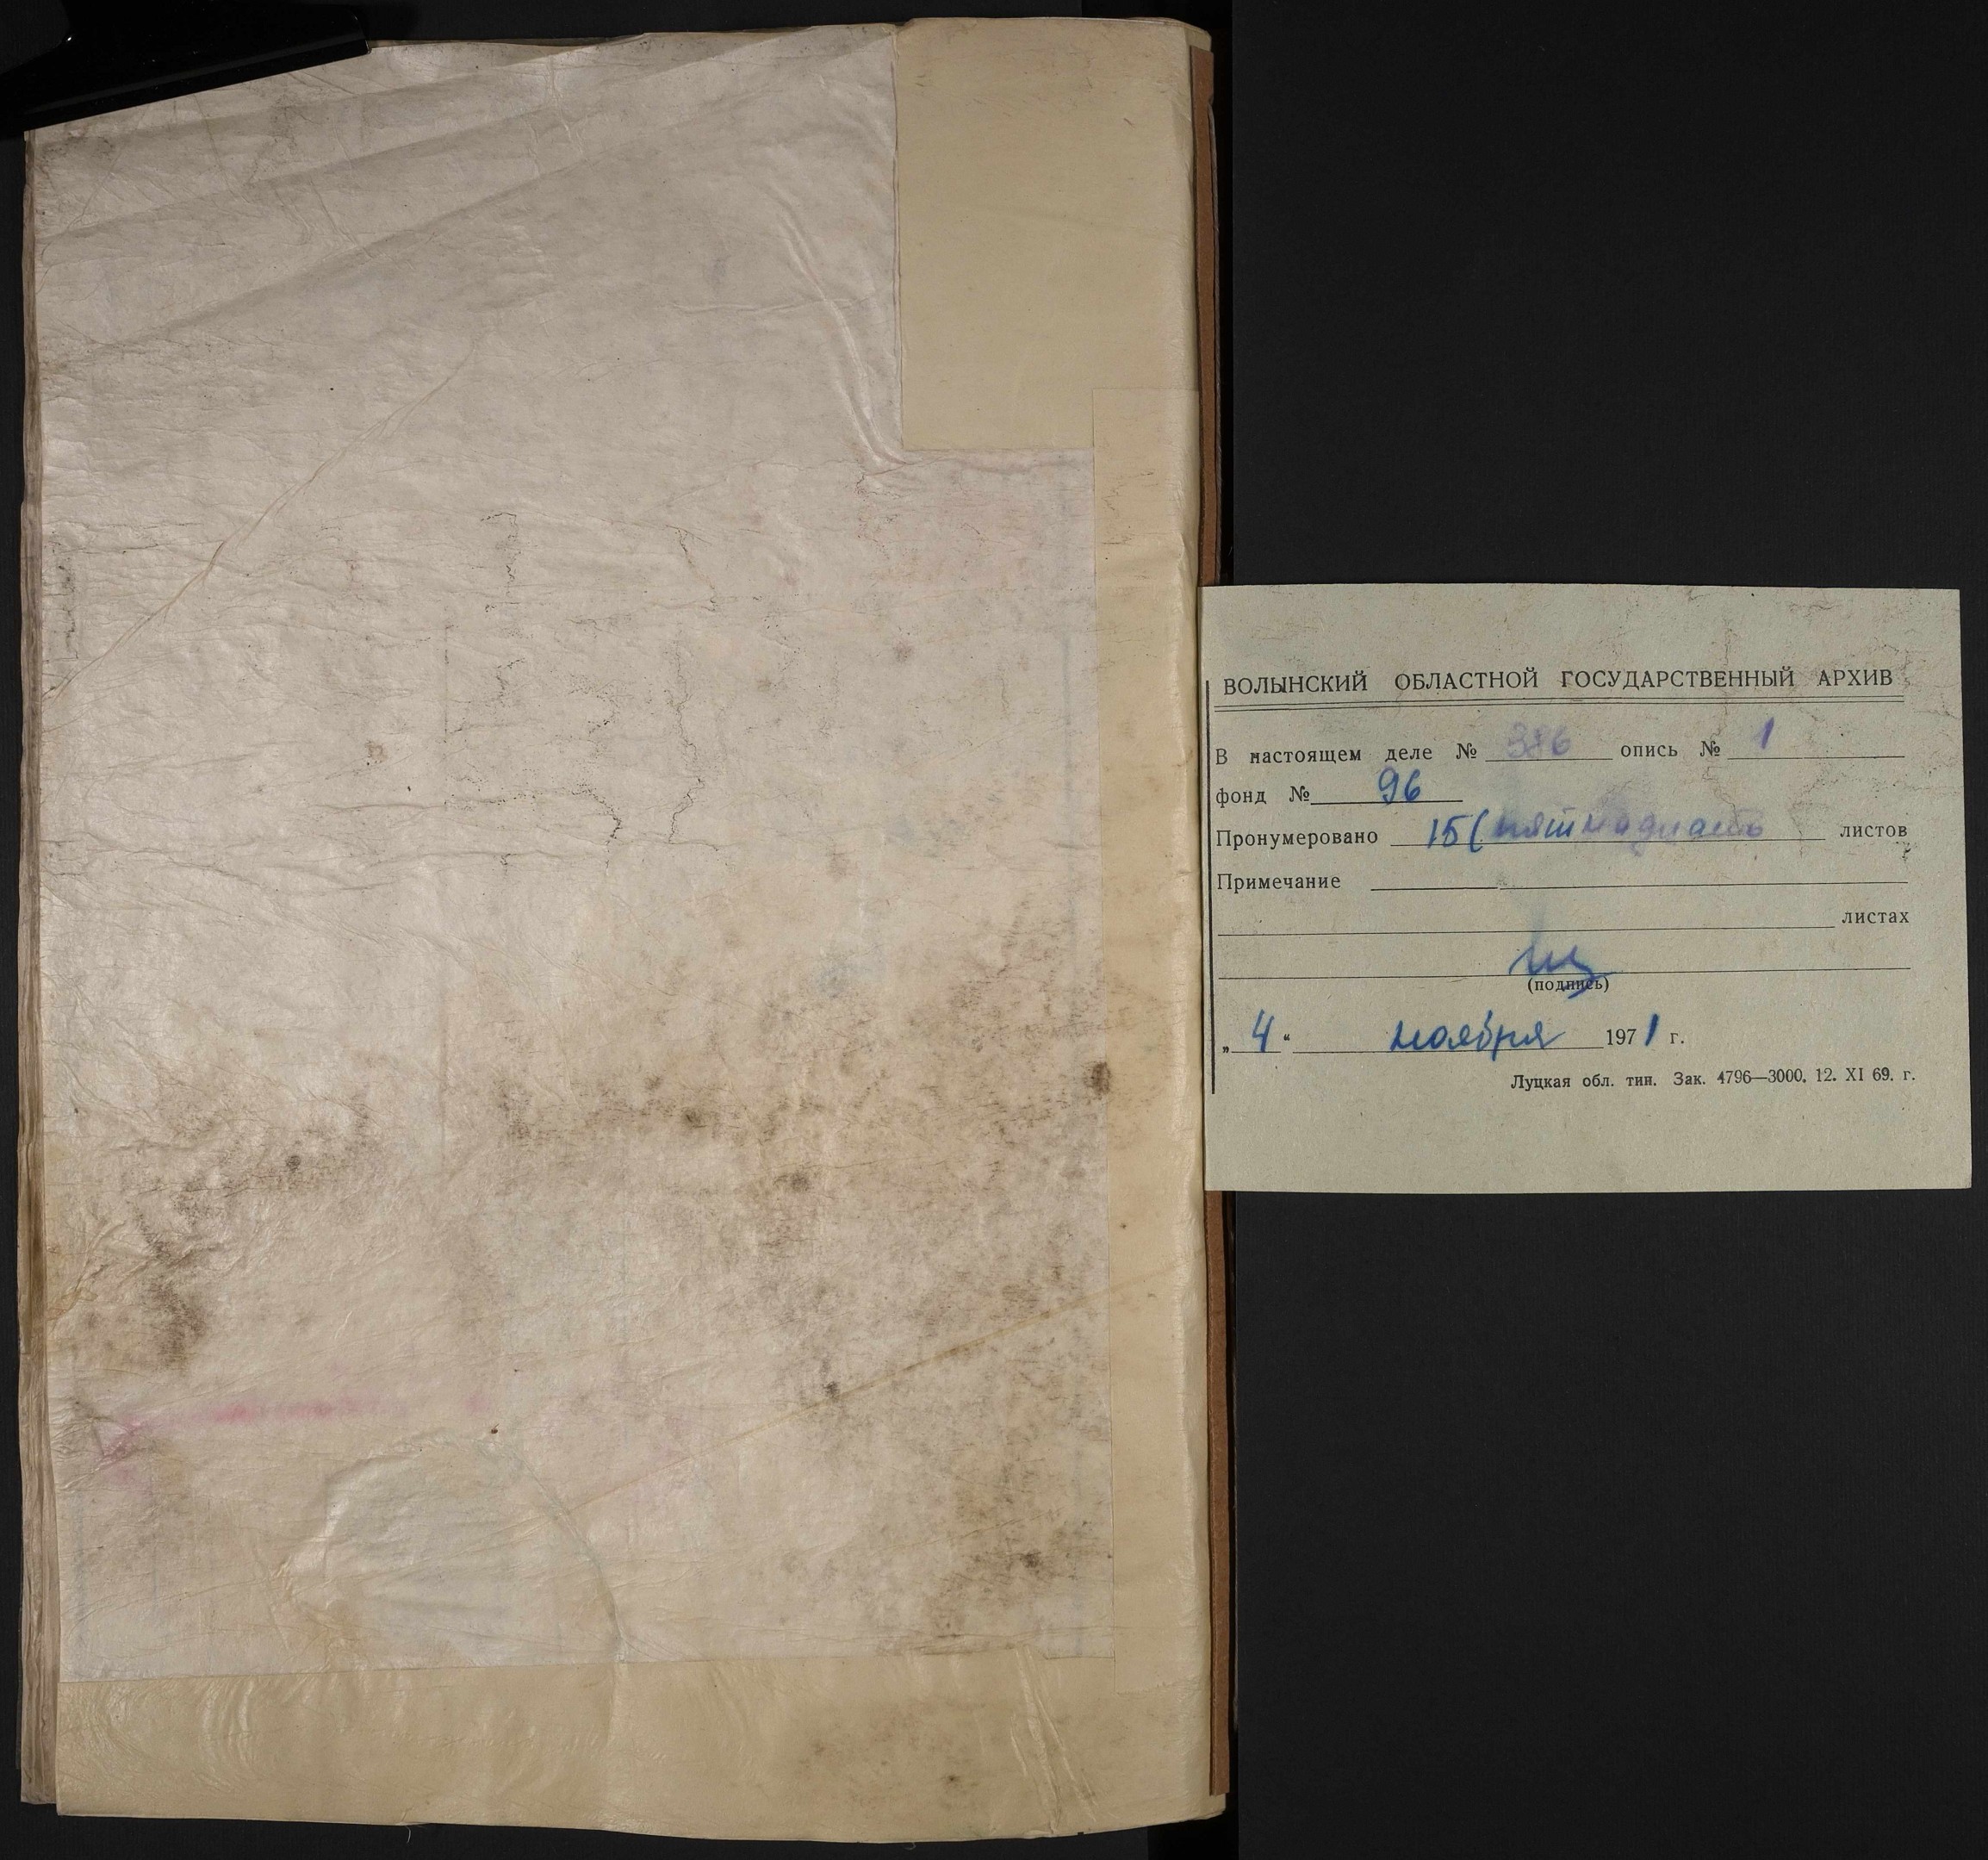 ВОЛЫНСКИЙ ОБЛАСТНОЙ ГОСУДАРСТВЕННЫЙ АРХИВ
В настоящем деле № опись № 1
фонд № 96
Пронумеровано 15 (пятнадцать листов
Примечание
листах
(подпись)
„4“ ноября 1971 г.
Луцкая обл. тип. Зак. 4796—3000. 12. XI 69. г.